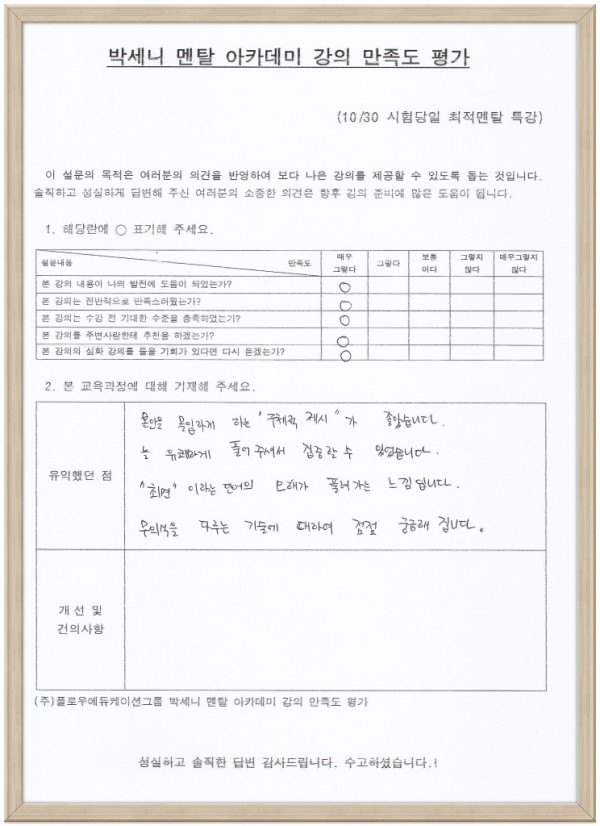 박세니 멘탈 아카데미 강의 만족도 평가
(10/30 시험당일 최적멘탈 특강)
이 설문의 목적은 여러분의 의견을 반영하여 보다 나은 강의를 제공할 수 있도록 돕는 것입니다.
솔직하고 성실하게 답변해 주신 여러분의 소중한 의견은 향후 강의 준비에 많은 도움이 됩니다.
1. 해당란에 ○ 표기해 주세요.
설문내용 만족도 매우 그렇다 그렇다 보통 이다 그렇지 않다 매우그렇지 않다
본 강의 내용이 나의 발전에 도움이 되었는가? ○
본 강의는 전반적으로 만족스러웠는가? ○
본 강의는 수강 전 기대한 수준을 충족하였는가? ○
본 강의를 주변사람한테 추천을 하겠는가? ○
본 강의의 심화 강의를 들을 기회가 있다면 다시 듣겠는가? ○
2. 본 교육과정에 대해 기재해 주세요.
유익했던 점
몰입하게 하는 "주체적 제시"가 좋았습니다.
늘 유쾌하게 풀어 주셔서 집중할 수 있었습니다.
"최면" 이라는 단어의 오래가 풀려가는 느낌입니다.
무의식을 다루는 기술에 대하여 점점 궁금해 집니다.
개선 및
건의사항
(주)플로우에듀케이션그룹 박세니 멘탈 아카데미 강의 만족도 평가
성실하고 솔직한 답변 감사드립니다. 수고하셨습니다.!